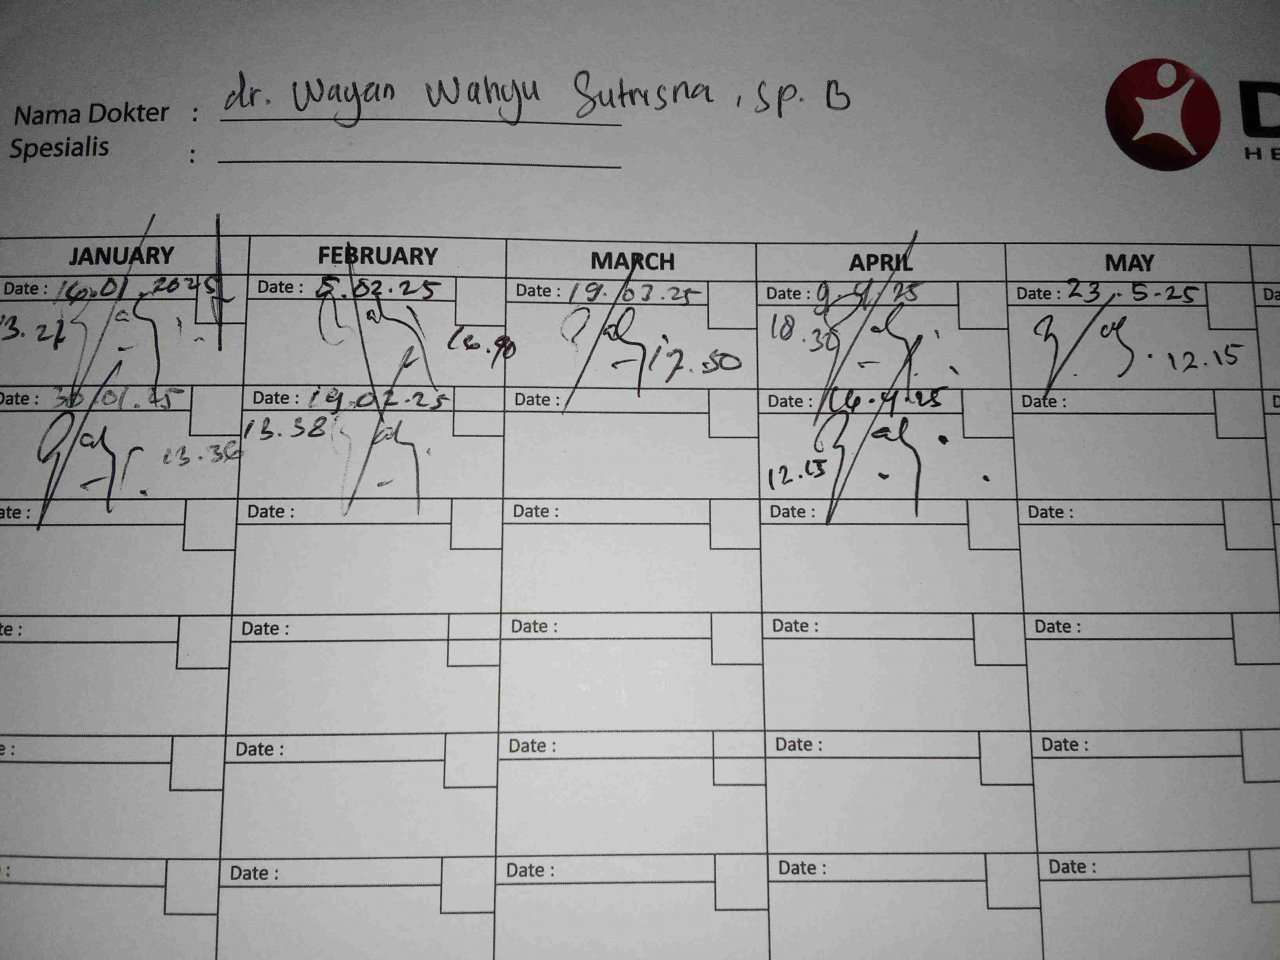 Nama Dokter : dr. Wayan Wahyu Sutrisna, Sp. B
Spesialis :
D
HE
JANUARY FEBRUARY MARCH APRIL MAY
Date : 16.01.2025 Date : 5.02.25 Date : 19.03.25 Date : 9.4.25 Date : 23.5.25 Da
13.21 18.30 12.15
17.50
Date : 30.01.25 Date : 19.02.25 Date : Date : 16.4.25 Date : D
13.36 13.38 12.15
ate : Date : Date : Date : Date :
te : Date : Date : Date : Date :
e : Date : Date : Date : Date :
: Date : Date : Date : Date :